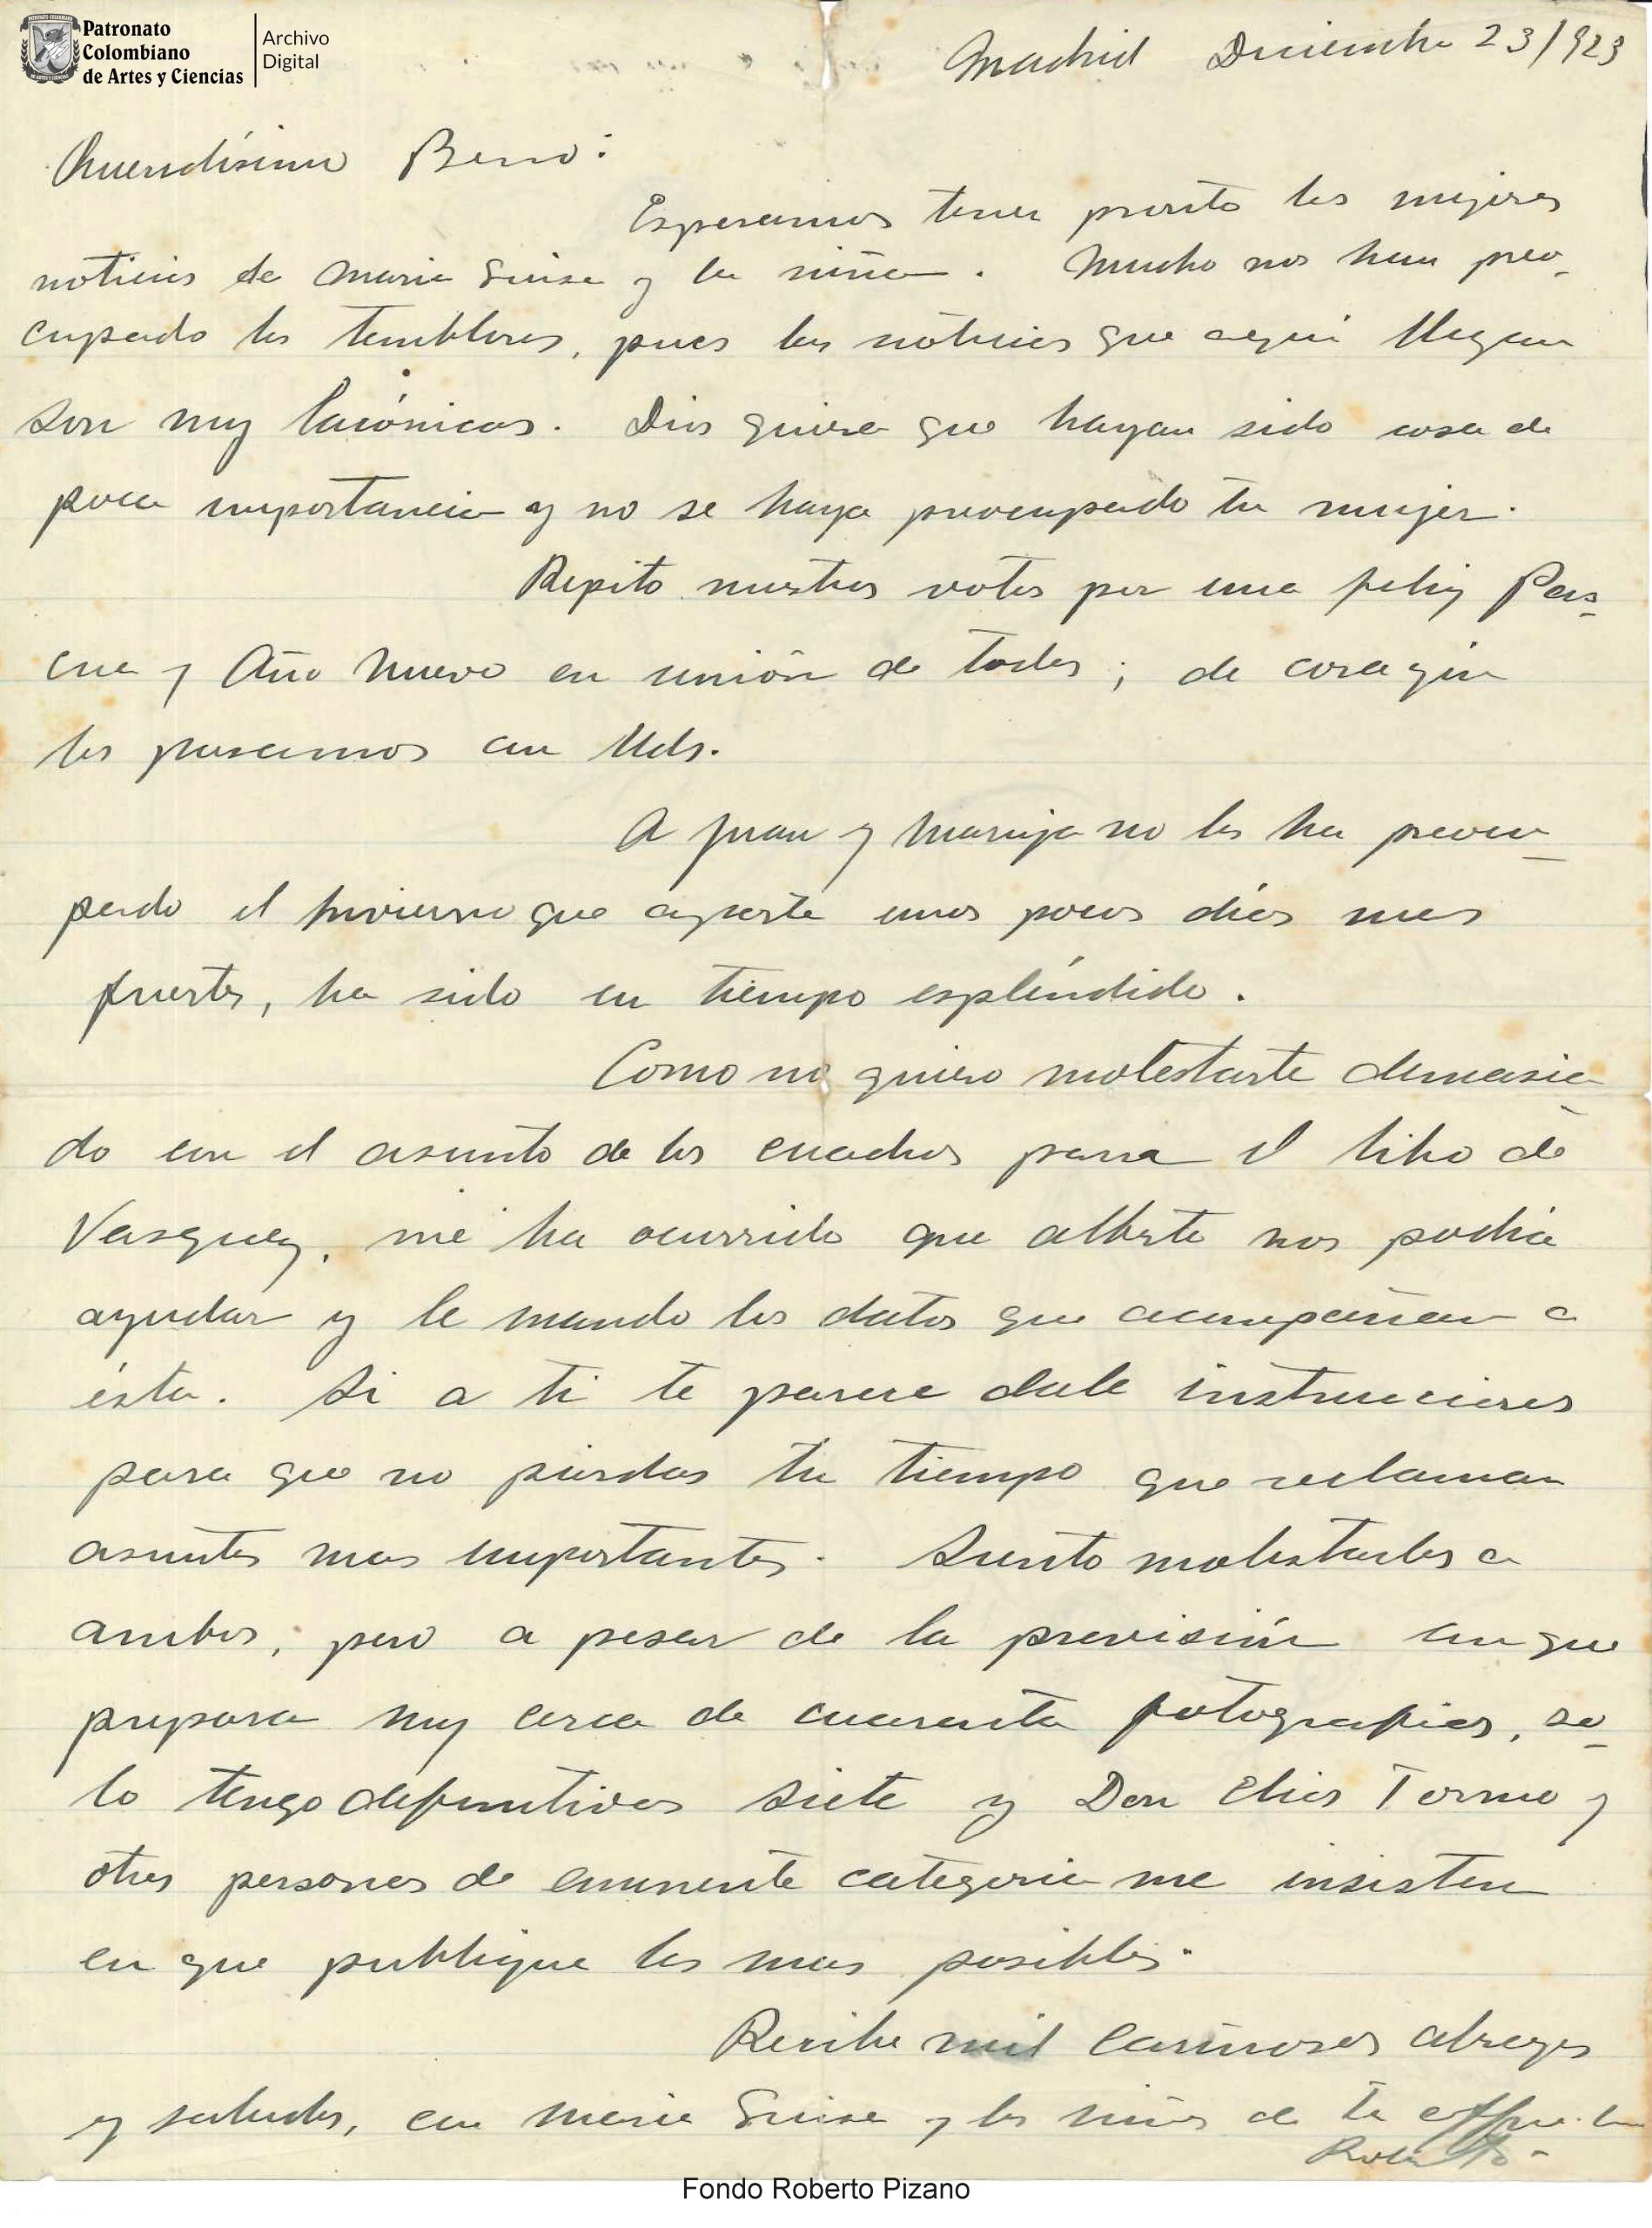 Patronato
Colombiano
de Artes y Ciencias
Archivo
Digital
Madrid Diciembre 23/923
Queridísimo Beno:
Esperamos tener pronto las mejores
noticias de Maria Luisa y la niña. Mucho nos han preo-
cupado los temblores, pues las noticias que aqui llegan
son muy lacónicas. Dios quiera que hayan sido cosa de
poca importancia y no se haya preocupado tu mujer.
Repito nuestros votos por una feliz Pas-
cua y Año Nuevo en unión de todos; de corazón
los pasamos con Uds.
A Juan y Maruja no les ha preocu-
pado el invierno que aparte unos pocos días mas
fuertes, ha sido un tiempo espléndido.
Como no quiero molestarte demasia-
do con el asunto de los cuadros para el libro de
Vasquez, me ha ocurrido que Alberto nos podría
ayudar y le mando los datos que acompañan a
ésta. Si a ti te parece dale instrucciones
para que no pierdas tu tiempo que reclaman
asuntos mas importantes. Siento molestarlos a
ambos, pero a pesar de la previsión con que
prepara muy cerca de cuarenta fotografias, so-
lo tengo definitivas siete y Don Elias Tormo y
otras personas de eminente categoria me insisten
en que publique las mas posibles.
Recibe mil cariñosos abrazos
y saludos, con Maria Luisa y los niños de tu
Roberto
Fondo Roberto Pizano